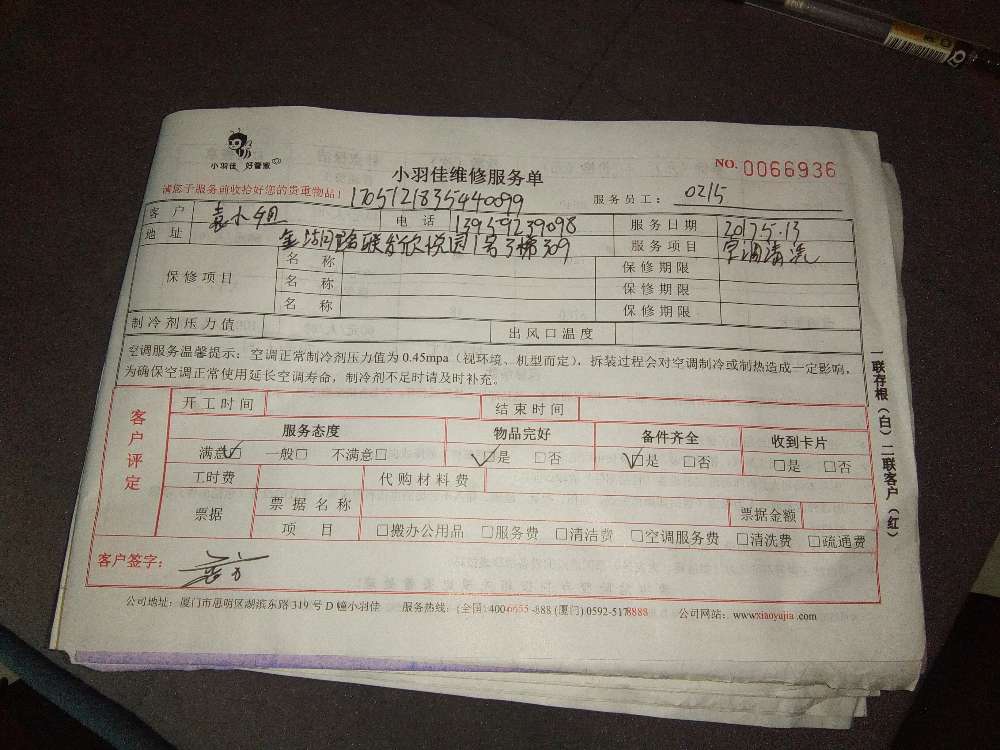 小羽佳 好管家
小羽佳维修服务单
NO. 0066936
请您于服务前收拾好您的贵重物品！ 17051218354440099 服务员工： 0215
客户 袁小姐 电话 13959239098 服务日期 2017.5.13
地址 金湖路联发欣悦园1号3梯309 服务项目 空调清洗
保修项目 名称 保修期限
名称 保修期限
名称 保修期限
制冷剂压力值 出风口温度
空调服务温馨提示：空调正常制冷剂压力值为0.45mpa（视环境、机型而定），拆装过程会对空调制冷或制热造成一定影响，
为确保空调正常使用延长空调寿命，制冷剂不足时请及时补充。
客户评定 开工时间 结束时间
服务态度 物品完好 备件齐全 收到卡片
满意☑ 一般□ 不满意□ ☑是 □否 ☑是 □否 □是 □否
工时费 代购材料费
票据 票据名称 票据金额
项目 □搬办公用品 □服务费 □清洁费 □空调服务费 □清洗费 □疏通费
客户签字：
公司地址：厦门市思明区湖滨东路319号D幢小羽佳 服务热线：(全国) 4006655-888 (厦门) 0592-5178888 公司网站：www.xiaoyujia.com
一联存根（白）二联客户（红）